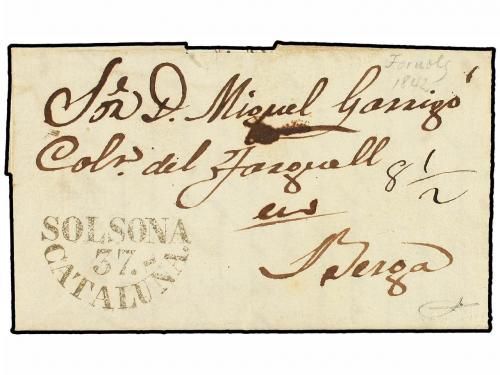 Fornols
1842
Sor. D. Miguel Garrigó
Colr. del Jasquell
8 1/2
en
Berga
SOLSONA
37.
CATALUÑA.